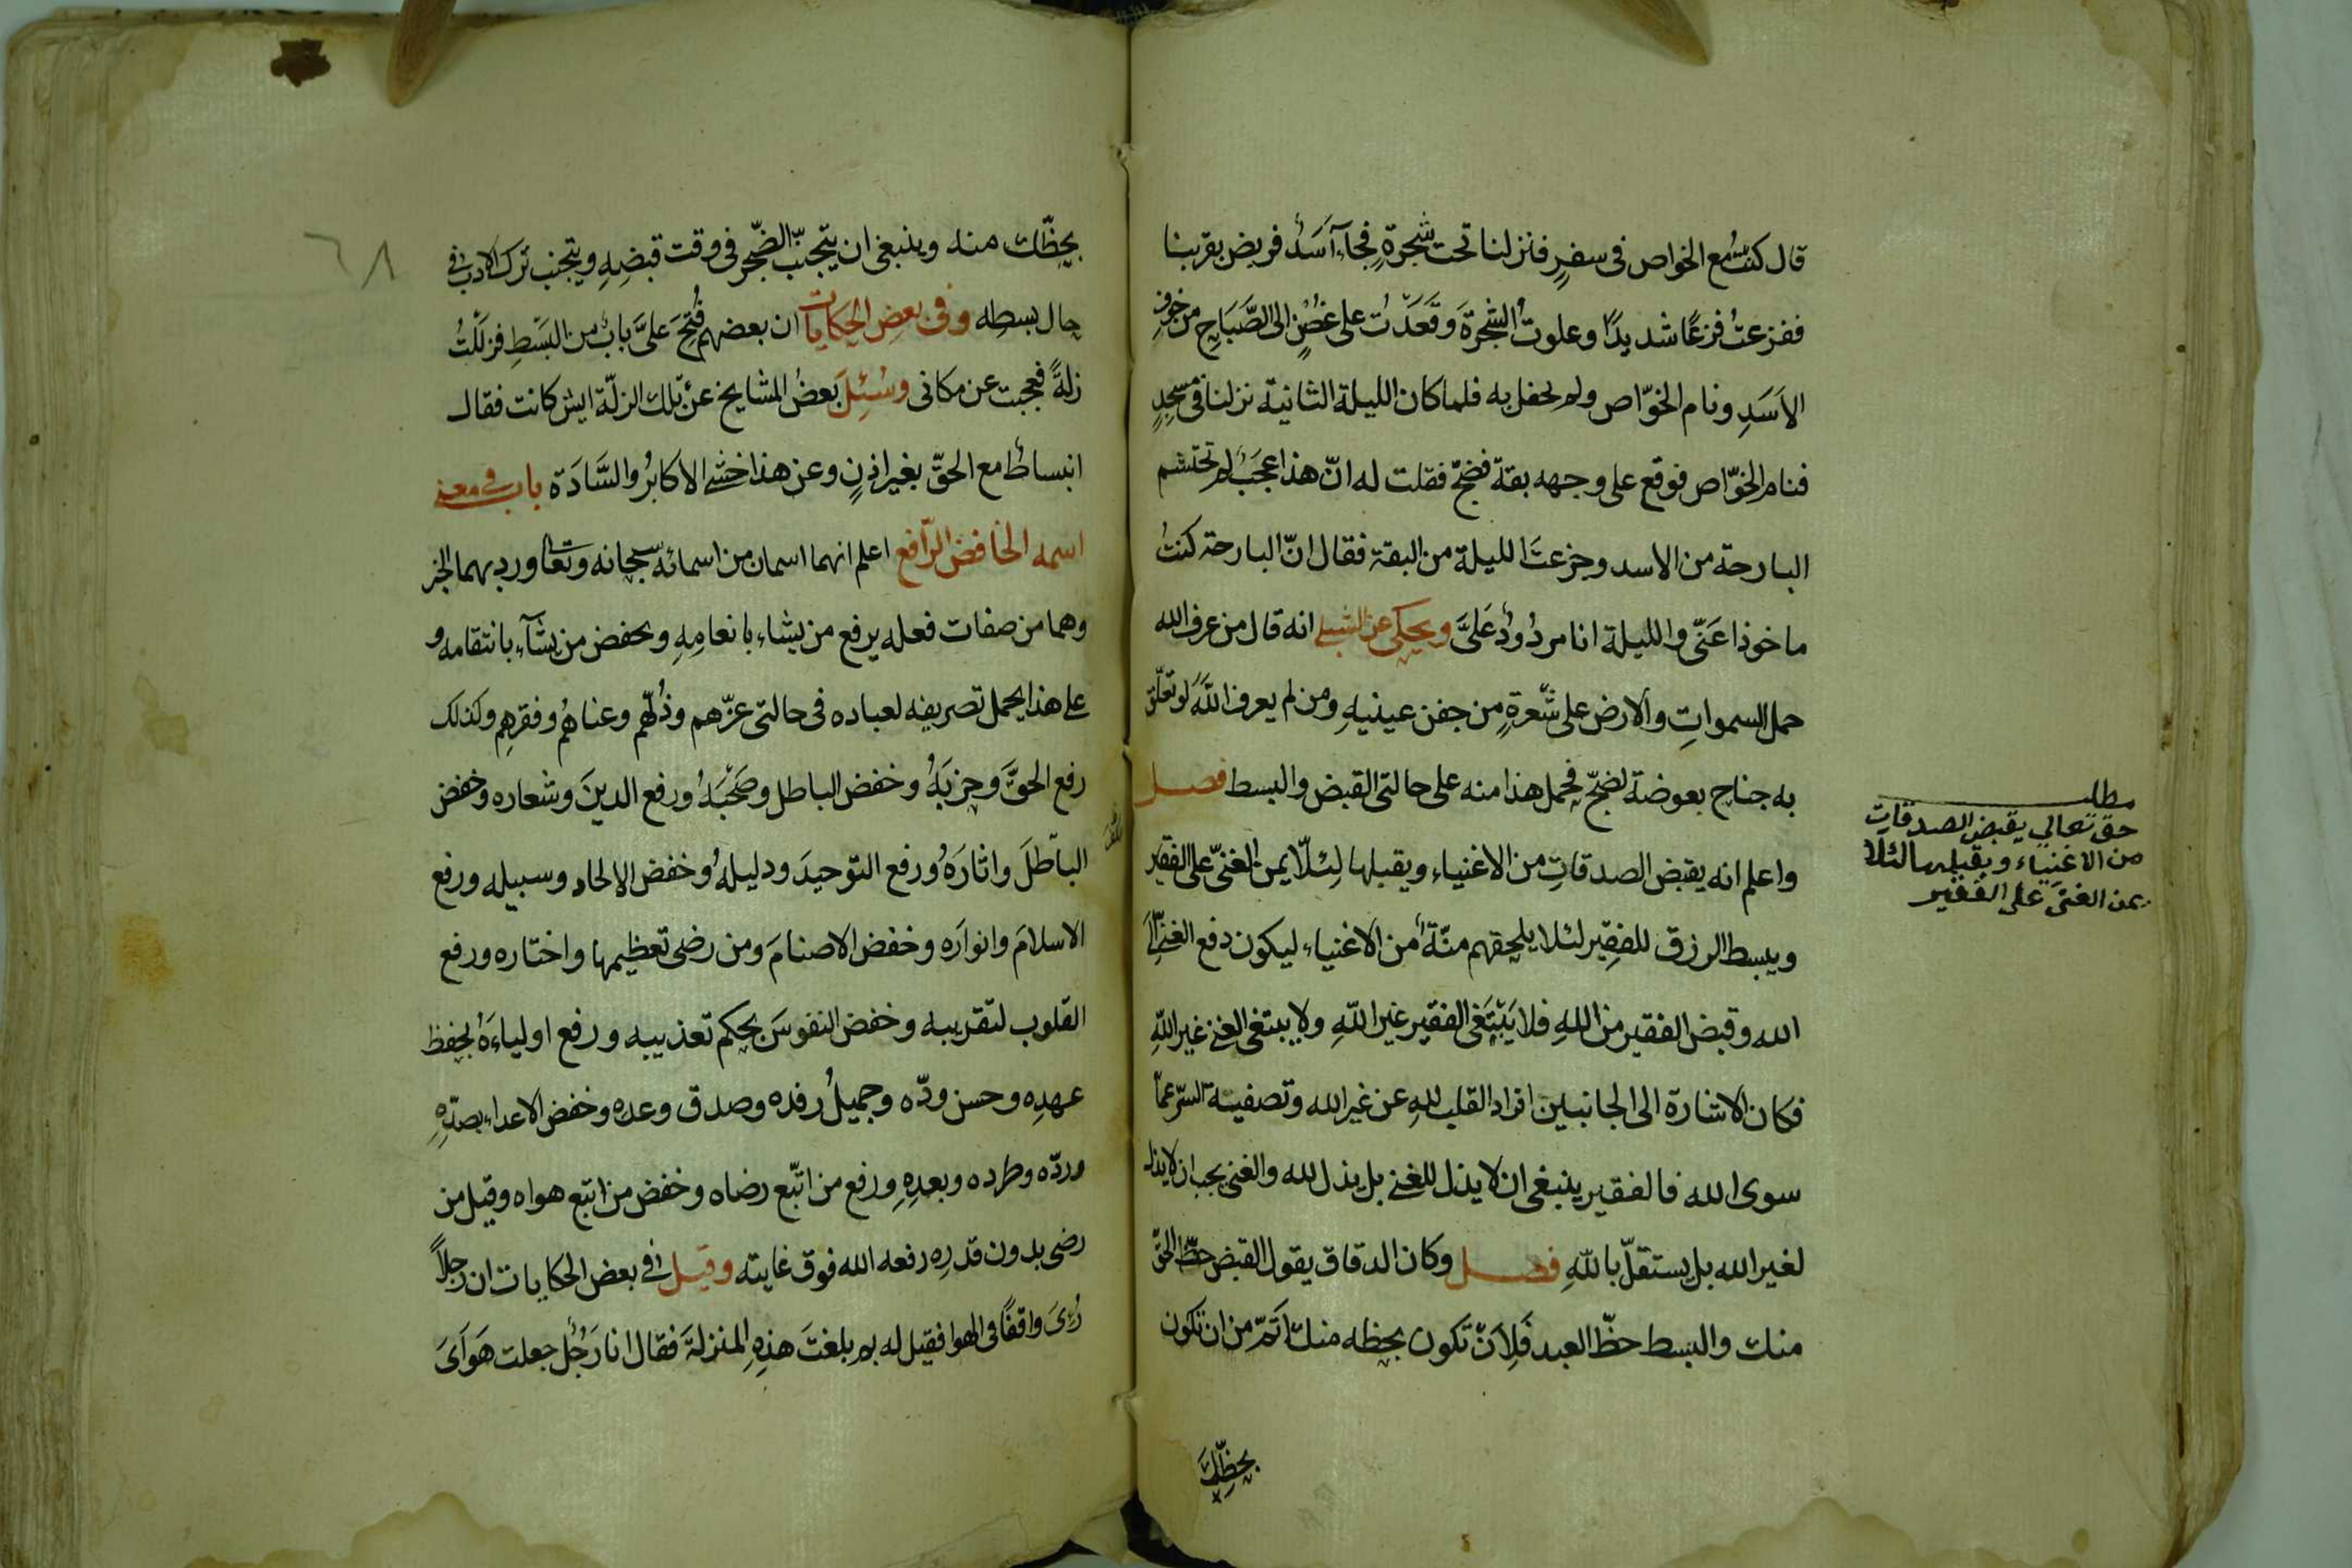 قال كنتُ مع الخواص فى سفرٍ فنزلنا تحت شجرةٍ فجآء آسَدٌ فربض بقربنا
ففزعتُ فزعًا شديدًا وعلوتُ الشجرةَ وقعَدْتُ على غصُنٍ الى الصَّبَاحِ من خوف
الاَسَدِ ونام الخوّاص ولم يحفل به فلما كان الليلة الثانية نزلنا فى مسجدٍ
فنام الخوّاص فوقع على وجهه بقة فضجّ فقلت له انّ هذا عجَبٌ لم تحتشم
البارحة من الاسد وجزعتَ الليلة من البقة فقال انّ البارحة كنتُ
ماخوذا عَنّى والليلة انا مردُودٌ عَلىَّ ويحكى عن الشبلى انه قال من عرف الله
حمل السمواتِ والارض على شَعرةٍ من جفن عينيهِ ومن لم يعرف اللهَ لو تعلّق
به جناح بعوضة لضجّ فحمل هذا منه على حالتى القبض والبسط فصل
واعلم انه يقبض الصدقاتِ من الاغنياء ويقبلها لِئلّا يمن الغنىّ على الفقير
ويبسط الرزق للفقِير لئلا يلحقهم منّةٌ من الاغنياء ليكون دفع الغنىّ الىَ
الله وقبض الفقير من اللهِ فلا يَبْتَغى الفقير غير اللهِ ولا يبتغى الغنى غير اللهِ
فكان الاشارة الى الجانبين افراد القلب للهِ عن غير الله وتصفية السرّ عمّا
سوى الله فالفقير ينبغى ان لا يذل للغنى بل يذل لله والغنى يجب ان لا يذل
لغير الله بل يستقلّ باللهِ فصل وكان الدقاق يقول القبض حظّ الحقّ
منك والبسط حظّ العبد فَلِاَنْ تكون بحظه منك اَتمّ من ان تكون
بحظِّكَ
مطلب
حق تعالي يقبض الصدقات
من الاغنياء ويقبلها لئلا
يمن الغنى على الفقير
بحِظّك منه وينبغى ان يتجنبّ الضّجر فى وقت قبضِهِ ويتجنب ترك الادب فى
حال بسطِه وفى بعض الحكايات ان بعضهم فُتِحَ علىَّ بابٌ من البَسْطِ فزلَلْتُ
زلةً فحجبت عن مكانى وسُئِلَ بعضُ المشايخ عن تلك الزلّة ايش كانت فقال
انبساطٌ مع الحقّ بغير اذنٍ وعن هذا خشى الاكابرُ والسَّادَة باب فى معنى
اسمه الخافض الرّافع اعلم انهما اسمان من اسمائه سبحانه وتعا ورد بهما الخبر
وهما من صفات فعله يرفع من يشاء بانعامِهِ ويخفض من يشآء بانتقامه و
على هذا يحمل تصريفه لعباده فى حالتى عزّهم وذُلّهم وغناهُم وفقرهِم وكذلك
رفع الحقَّ وحِزبَهُ وخفض الباطل وصَحْبَهُ ورفع الدينَ وشعاره وخفض
الباطلَ واثارَهُ ورفع التوحيدَ ودليلهُ وخفض الالحاد وسبيله ورفع
الاسلامَ وانوارَه وخفض الاصنامَ ومن رضى تعظيمها واختاره ورفع
القلوب لتقريبه وخفض النفوسَ بحكم تعذيبه ورفع اولياءَهُ بحفظ
عهدِه وحسن ودّه وجميلُ رفده وصدق وعده وخفض الاعداء بصدِّهِ
وردّه وطرده وبعدِهِ ورفع من اتّبع رضاه وخفض من اتبع هواه وقيل من
رضى بدون قدرِه رفعه الله فوق غايته وقيل فى بعض الحكايات ان رجلاً
رُئِىَ واقفًا فى الهوا فقيل له بم بلغتَ هذِهِ المنزلةَ فقال انا رَجُلٌ جعلت هَوَآىَ
٦٨